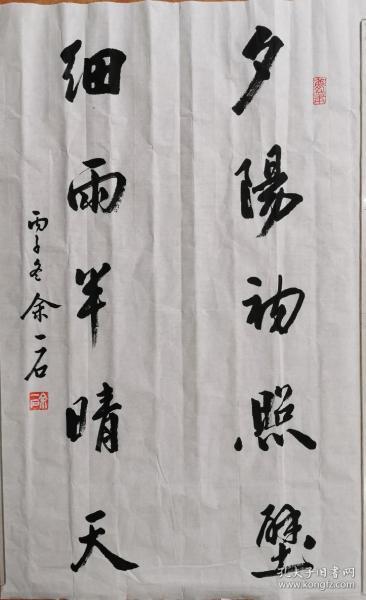 夕陽初照壁
細雨半晴天
丙子冬余一石
孔夫子旧书网